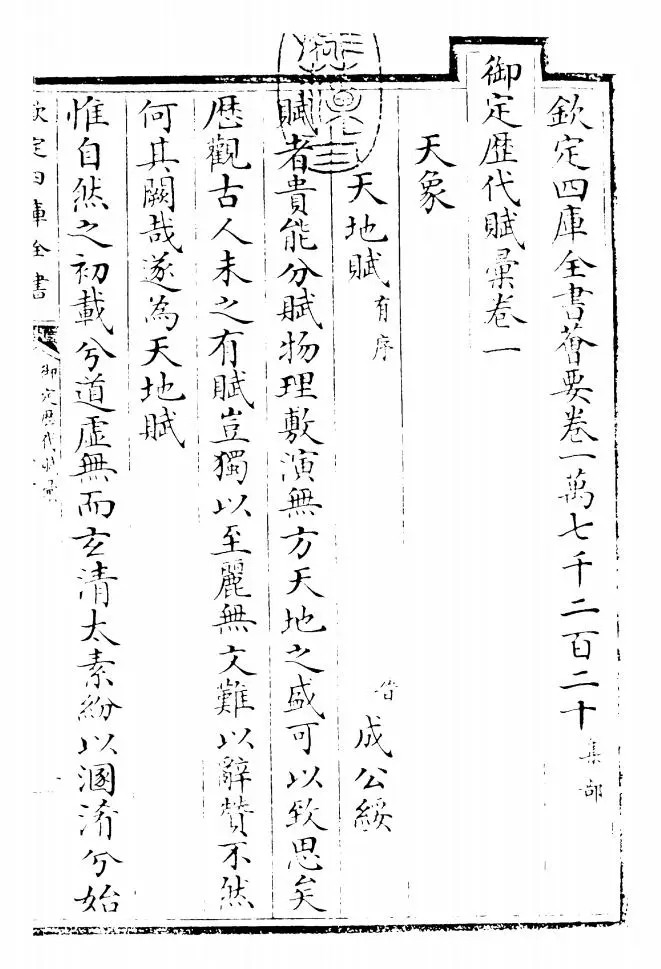 欽定四庫全書薈要卷一萬七千二百二十 集部
御定歴代賦彙卷一
天象
天地賦 有序 晉 成公綏
賦者貴能分賦物理敷演無方天地之盛可以致思矣
歴觀古人未之有賦豈獨以至麗無文難以辭贊不然
何其闕哉遂為天地賦
惟自然之初載兮道虛無而玄清太素紛以溷淆兮始
欽定四庫全書
御定歴代賦彙